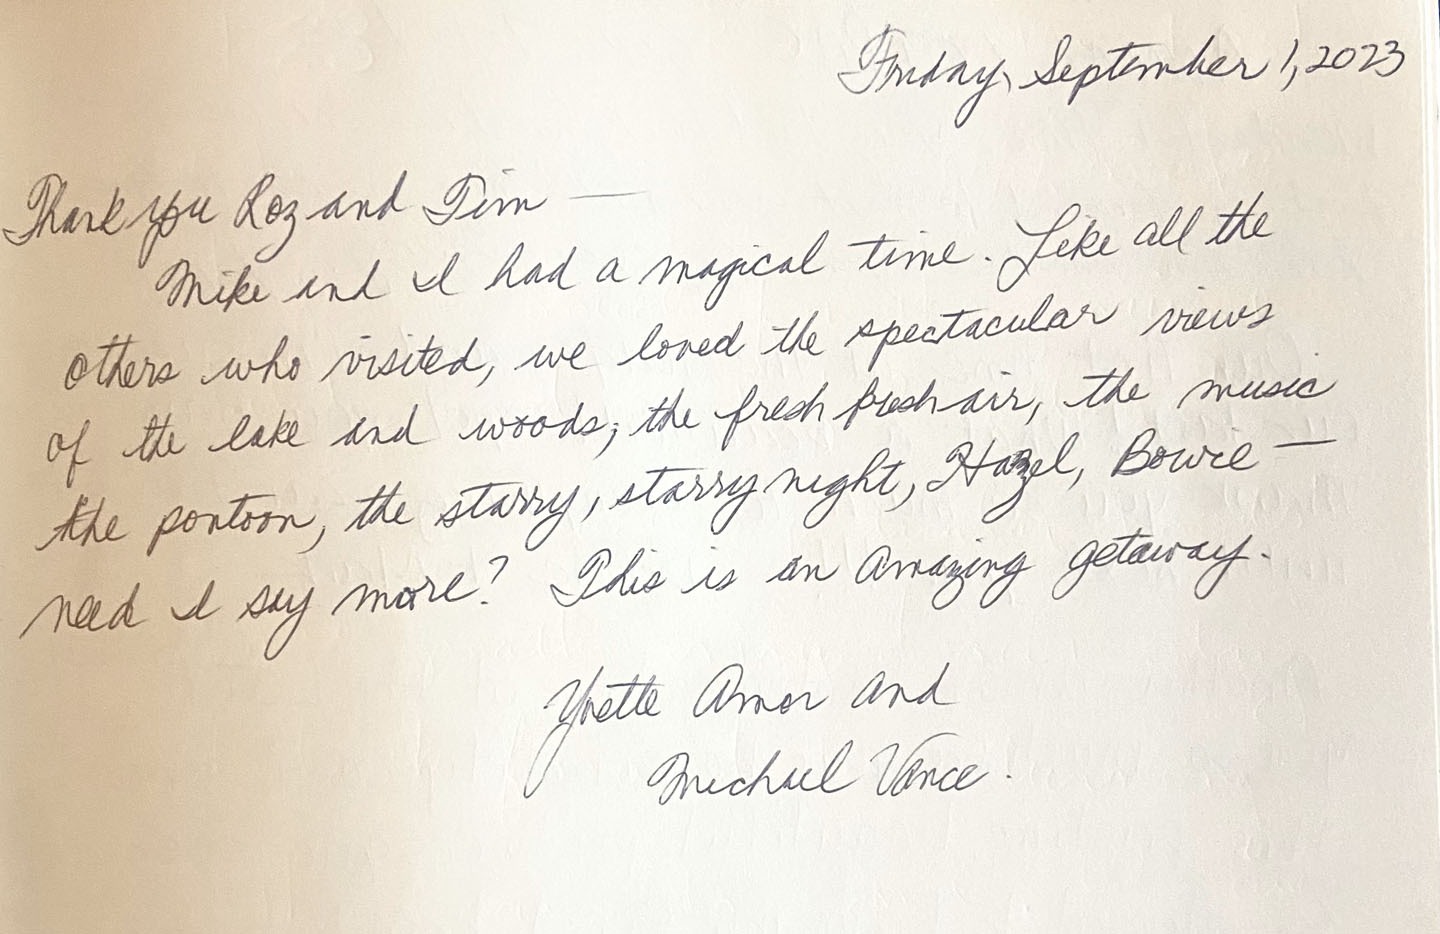 Friday, September 1, 2023
Thank you Roz and Tim —
Mike and I had a magical time. Like all the
others who visited, we loved the spectacular views
of the lake and woods, the fresh fresh air, the music
the pontoon, the starry, starry night, Hazel, Bowie —
need I say more? This is an amazing getaway.
Yvette Amor and
Michael Vance.